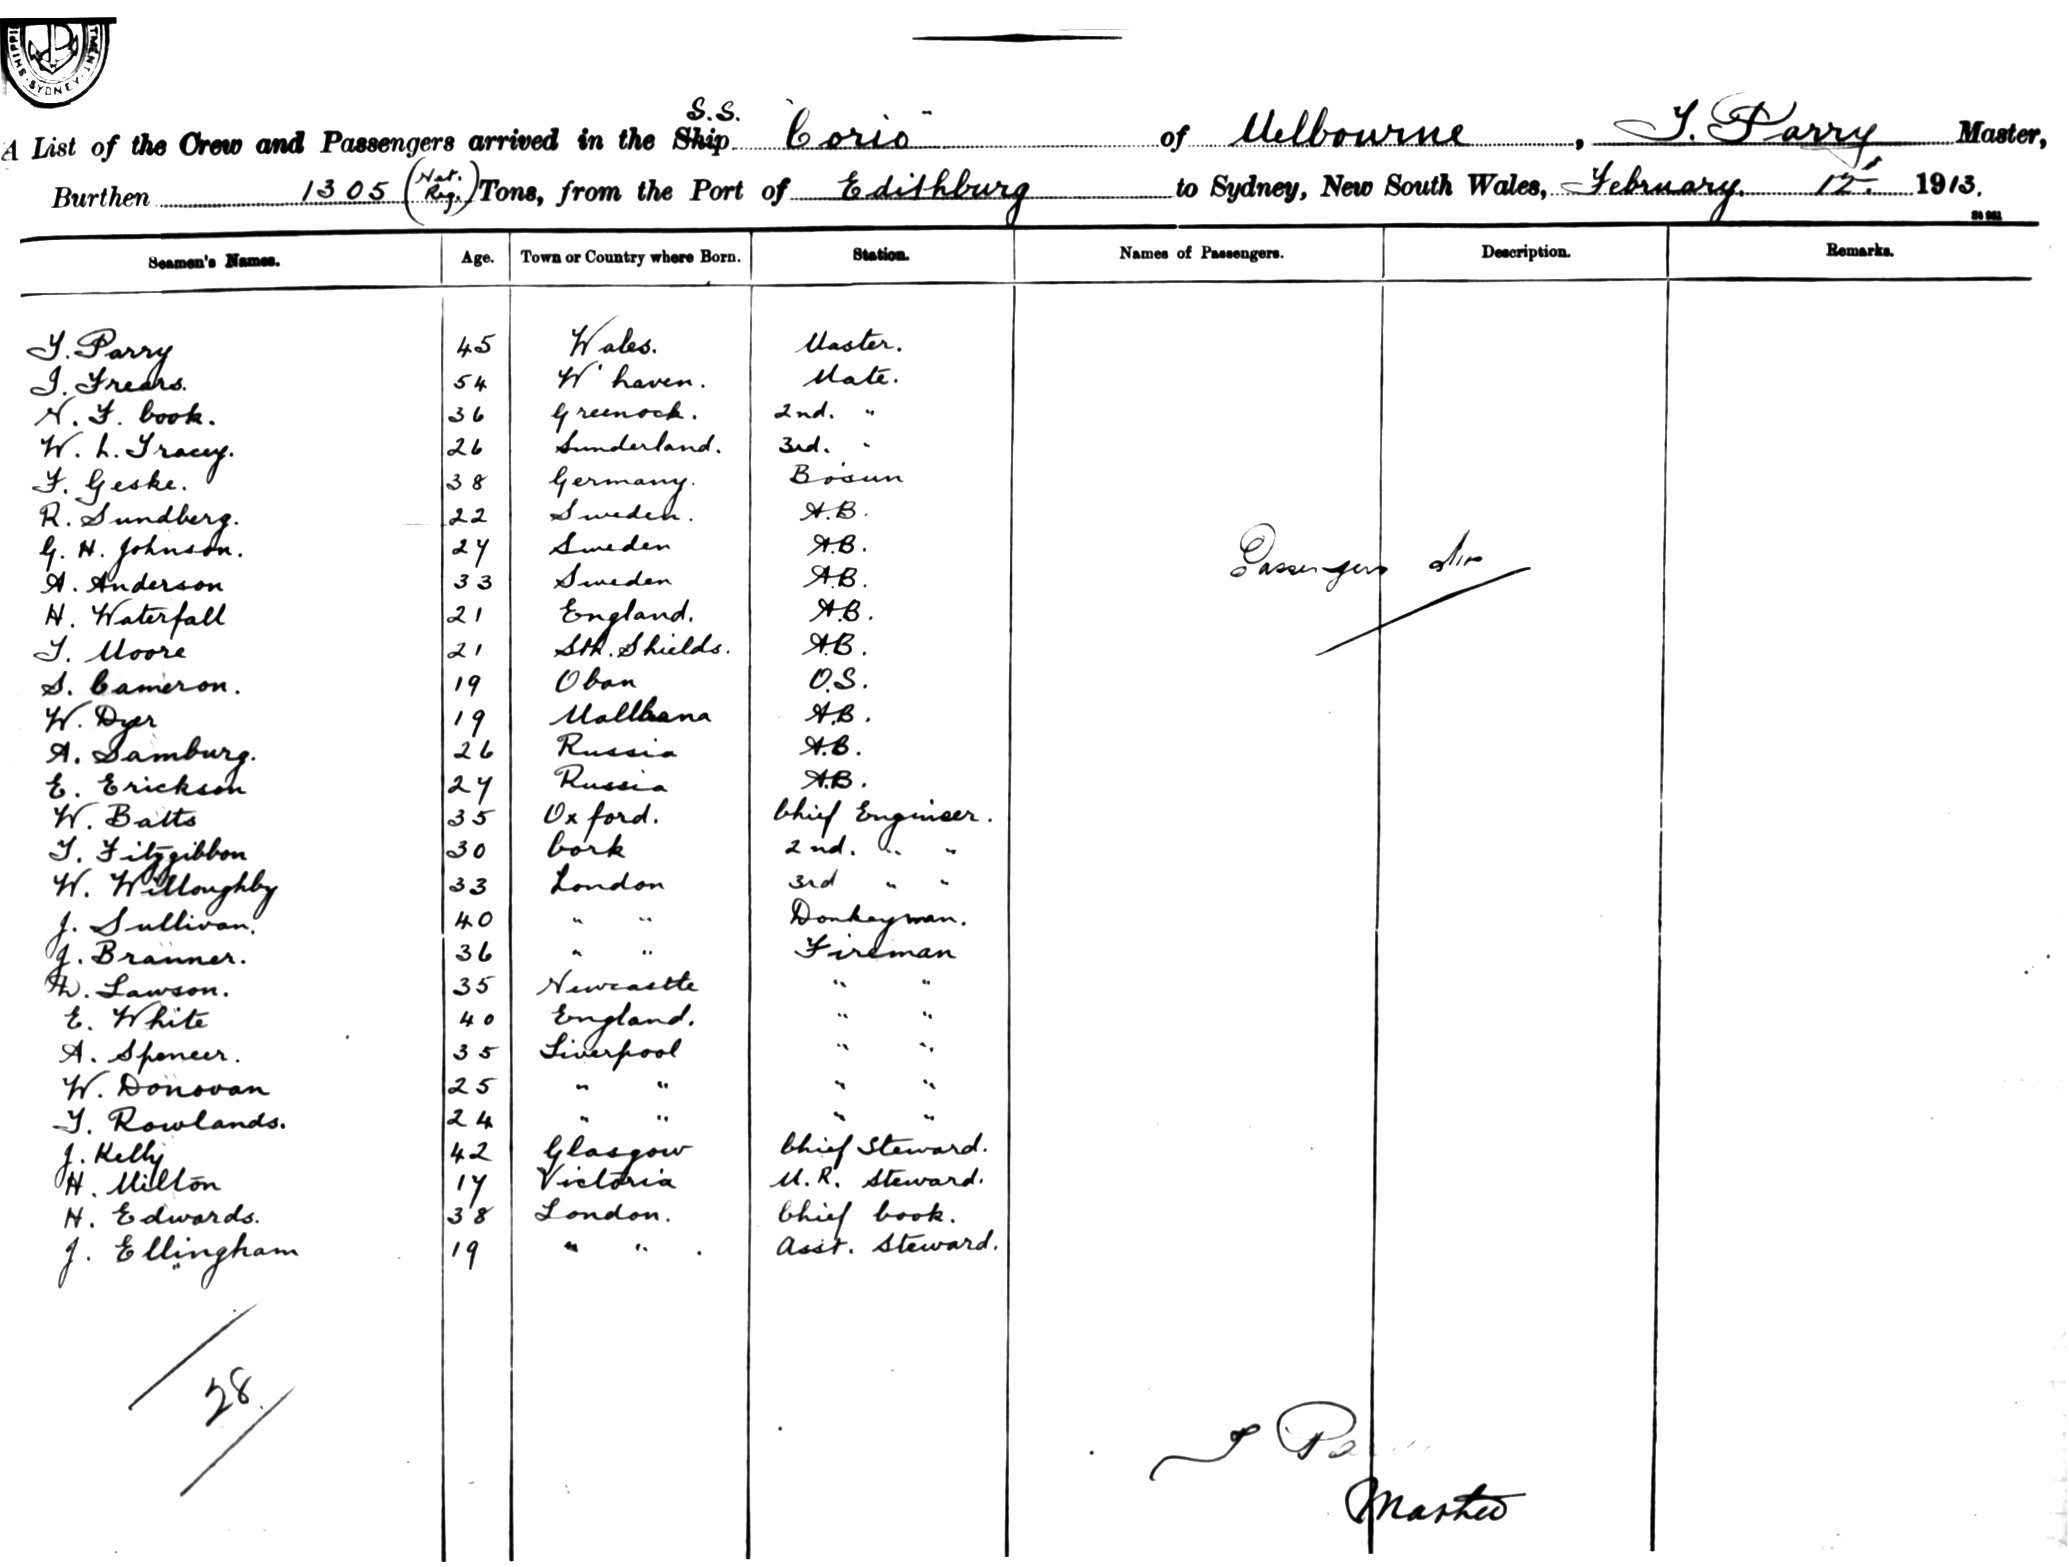 SHIPPI TMENT. SYDNEY
S.S.
A List of the Crew and Passengers arrived in the Ship "Corio" of Melbourne, T. Parry Master,
Burthen 1305 (Net. Reg.) Tons, from the Port of Edithburg to Sydney, New South Wales, February. 12. 1913.
Seamen's Names. Age. Town or Country where Born. Station. Names of Passengers. Description. Remarks.
T. Parry 45 Wales. Master.
J. Frears. 54 W'haven. Mate.
N. F. Cook. 36 Greenock. 2nd. "
W. L. Tracey. 26 Sunderland. 3rd. "
F. Geske. 38 Germany. Bosun
R. Sundberg. 22 Sweden. A.B.
G. H. Johnson. 27 Sweden A.B.
A. Anderson 33 Sweden A.B. Passengers
H. Waterfall 21 England. A.B.
T. Moore 21 Sth. Shields. A.B.
S. Cameron. 19 Oban O.S.
W. Dyer 19 A.B.
A. Samburg. 26 Russia A.B.
E. Erickson 27 Russia A.B.
W. Batts 35 Oxford. Chief Engineer.
T. Fitzgibbon 30 Cork 2nd. " "
W. Willoughby 33 London 3rd " "
J. Sullivan. 40 " " Donkeyman.
J. Branner. 36 " " Fireman
Lawson. 35 Newcastle " "
E. White 40 England. " "
A. Spencer. 35 Liverpool " "
W. Donovan 25 " " " "
T. Rowlands. 24 " " " "
J. Kelly 42 Glasgow Chief Steward.
H. Milton 17 Victoria M.R. Steward.
H. Edwards. 38 London. Chief Cook.
J. Ellingham 19 " " . Asst. Steward.
28
T Pa
Master